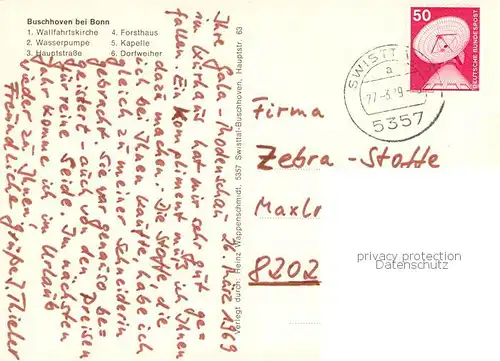 Buschhoven bei Bonn
1. Wallfahrtskirche 4. Forsthaus
2. Wasserpumpe 5. Kapelle
3. Hauptstraße 6. Dorfweiher
26. März 1969
Ihre Gala-Modenschau
im hat mir sehr gut ge=
fallen. Ein Kompliment muß ich Ihnen
dazu machen. Die Stoffe die
ich bei Ihnen kaufte, habe ich
gleich zu meiner Schneiderin
gebracht. Sie war genauso be=
geistert - auch von den Preisen
für reine Seide. Im nächsten
Jahr komme ich im Urlaub
wieder zu Ihnen!
Freundliche Grüße I. Thieler
Verlegt durch: Heinz Wappenschmidt, 5357 Swisttal-Buschhoven, Hauptstr. 63
50
DEUTSCHE BUNDESPOST
SWISTT
a
5357
Firma
Zebra-Stoffe
Maxlr
8202
privacy protection
Datenschutz